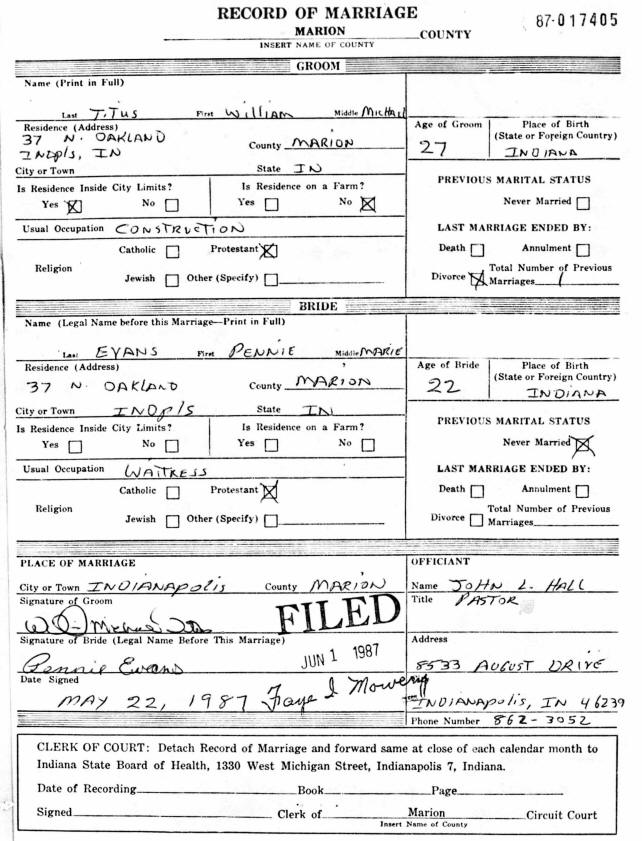 RECORD OF MARRIAGE
87-017405
MARION COUNTY
INSERT NAME OF COUNTY
GROOM
Name (Print in Full)
Last TiTUS First William Middle Michail
Residence (Address)
37 N. OAKLAND
INDpls, IN
County MARION
City or Town State IN
Age of Groom
27
Place of Birth
(State or Foreign Country)
INDIANA
Is Residence Inside City Limits?
Yes ☒ No ☐
Is Residence on a Farm?
Yes ☐ No ☒
Usual Occupation CONSTRUCTION
Religion
Catholic ☐ Protestant ☒
Jewish ☐ Other (Specify) ☐
PREVIOUS MARITAL STATUS
Never Married ☐
LAST MARRIAGE ENDED BY:
Death ☐ Annulment ☐
Divorce ☒ Total Number of Previous
Marriages 1
BRIDE
Name (Legal Name before this Marriage—Print in Full)
Last EVANS First PENNIE Middle MARIE
Residence (Address)
37 N. OAKLAND County MARION
City or Town INDpls State IN
Age of Bride
22
Place of Birth
(State or Foreign Country)
INDIANA
Is Residence Inside City Limits?
Yes ☐ No ☐
Is Residence on a Farm?
Yes ☐ No ☐
Usual Occupation WAITRESS
Religion
Catholic ☐ Protestant ☒
Jewish ☐ Other (Specify) ☐
PREVIOUS MARITAL STATUS
Never Married ☒
LAST MARRIAGE ENDED BY:
Death ☐ Annulment ☐
Divorce ☐ Total Number of Previous
Marriages
PLACE OF MARRIAGE
City or Town INDIANAPOLIS County MARION
Signature of Groom
Michael
Signature of Bride (Legal Name Before This Marriage)
Pennie Evans
Date Signed
MAY 22, 1987
FILED
JUN 1 1987
Faye I Mowery
OFFICIANT
Name JOHN L. HALL
Title PASTOR
Address
8533 AUGUST DRIVE
INDIANAPOLIS, IN 46239
Phone Number 862-3052
CLERK OF COURT: Detach Record of Marriage and forward same at close of each calendar month to
Indiana State Board of Health, 1330 West Michigan Street, Indianapolis 7, Indiana.
Date of Recording Book Page
Signed Clerk of Marion Circuit Court
Insert Name of County